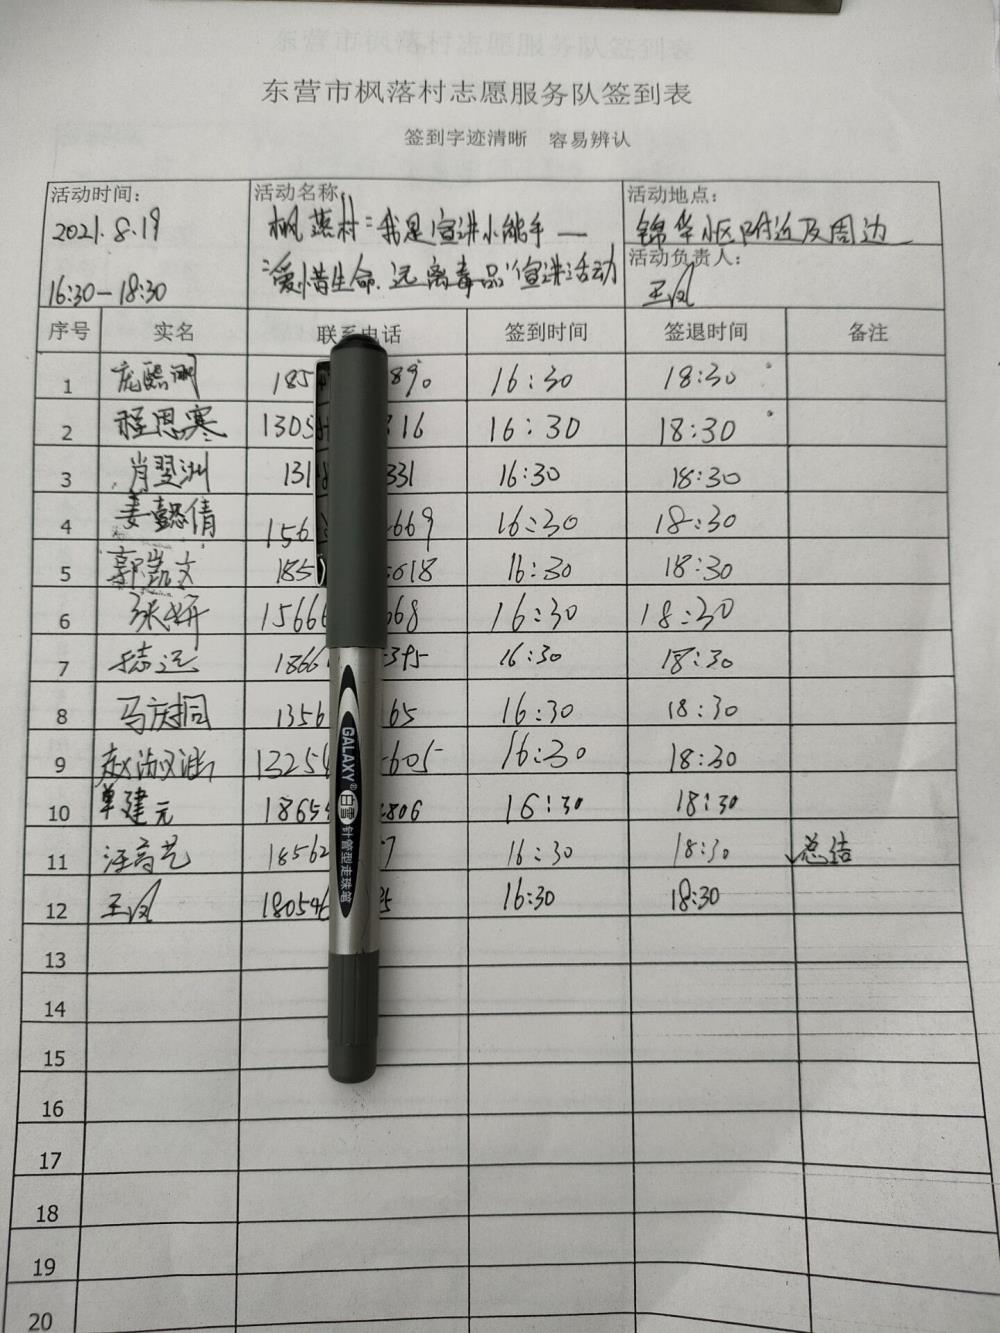 东营市枫落村志愿服务队签到表
签到字迹清晰 容易辨认
活动时间:
2021.8.19
16:30-18:30
活动名称:
枫落村"我是宣讲小能手——
"爱惜生命、远离毒品"宣讲活动
活动地点:
锦华小区附近及周边
活动负责人:
王凤
序号 实名 联系电话 签到时间 签退时间 备注
1 185 890 16:30 18:30
2 程思寒 1305 316 16:30 18:30
3 肖翌洲 131 331 16:30 18:30
4 姜懿倩 156 669 16:30 18:30
5 郭嵩文 185 618 16:30 18:30
6 张妍 15666 668 16:30 18:30
7 志远 1866 395 16:30 18:30
8 马庆桐 1356 165 16:30 18:30
9 赵淑涵 13254 605 16:30 18:30
10 单建元 18654 806 16:30 18:30
11 汪高艺 18562 7 16:30 18:30 总结
12 王凤 180546 35 16:30 18:30
13
14
15
16
17
18
19
20
GALAXY® 白雪 针管型走珠笔